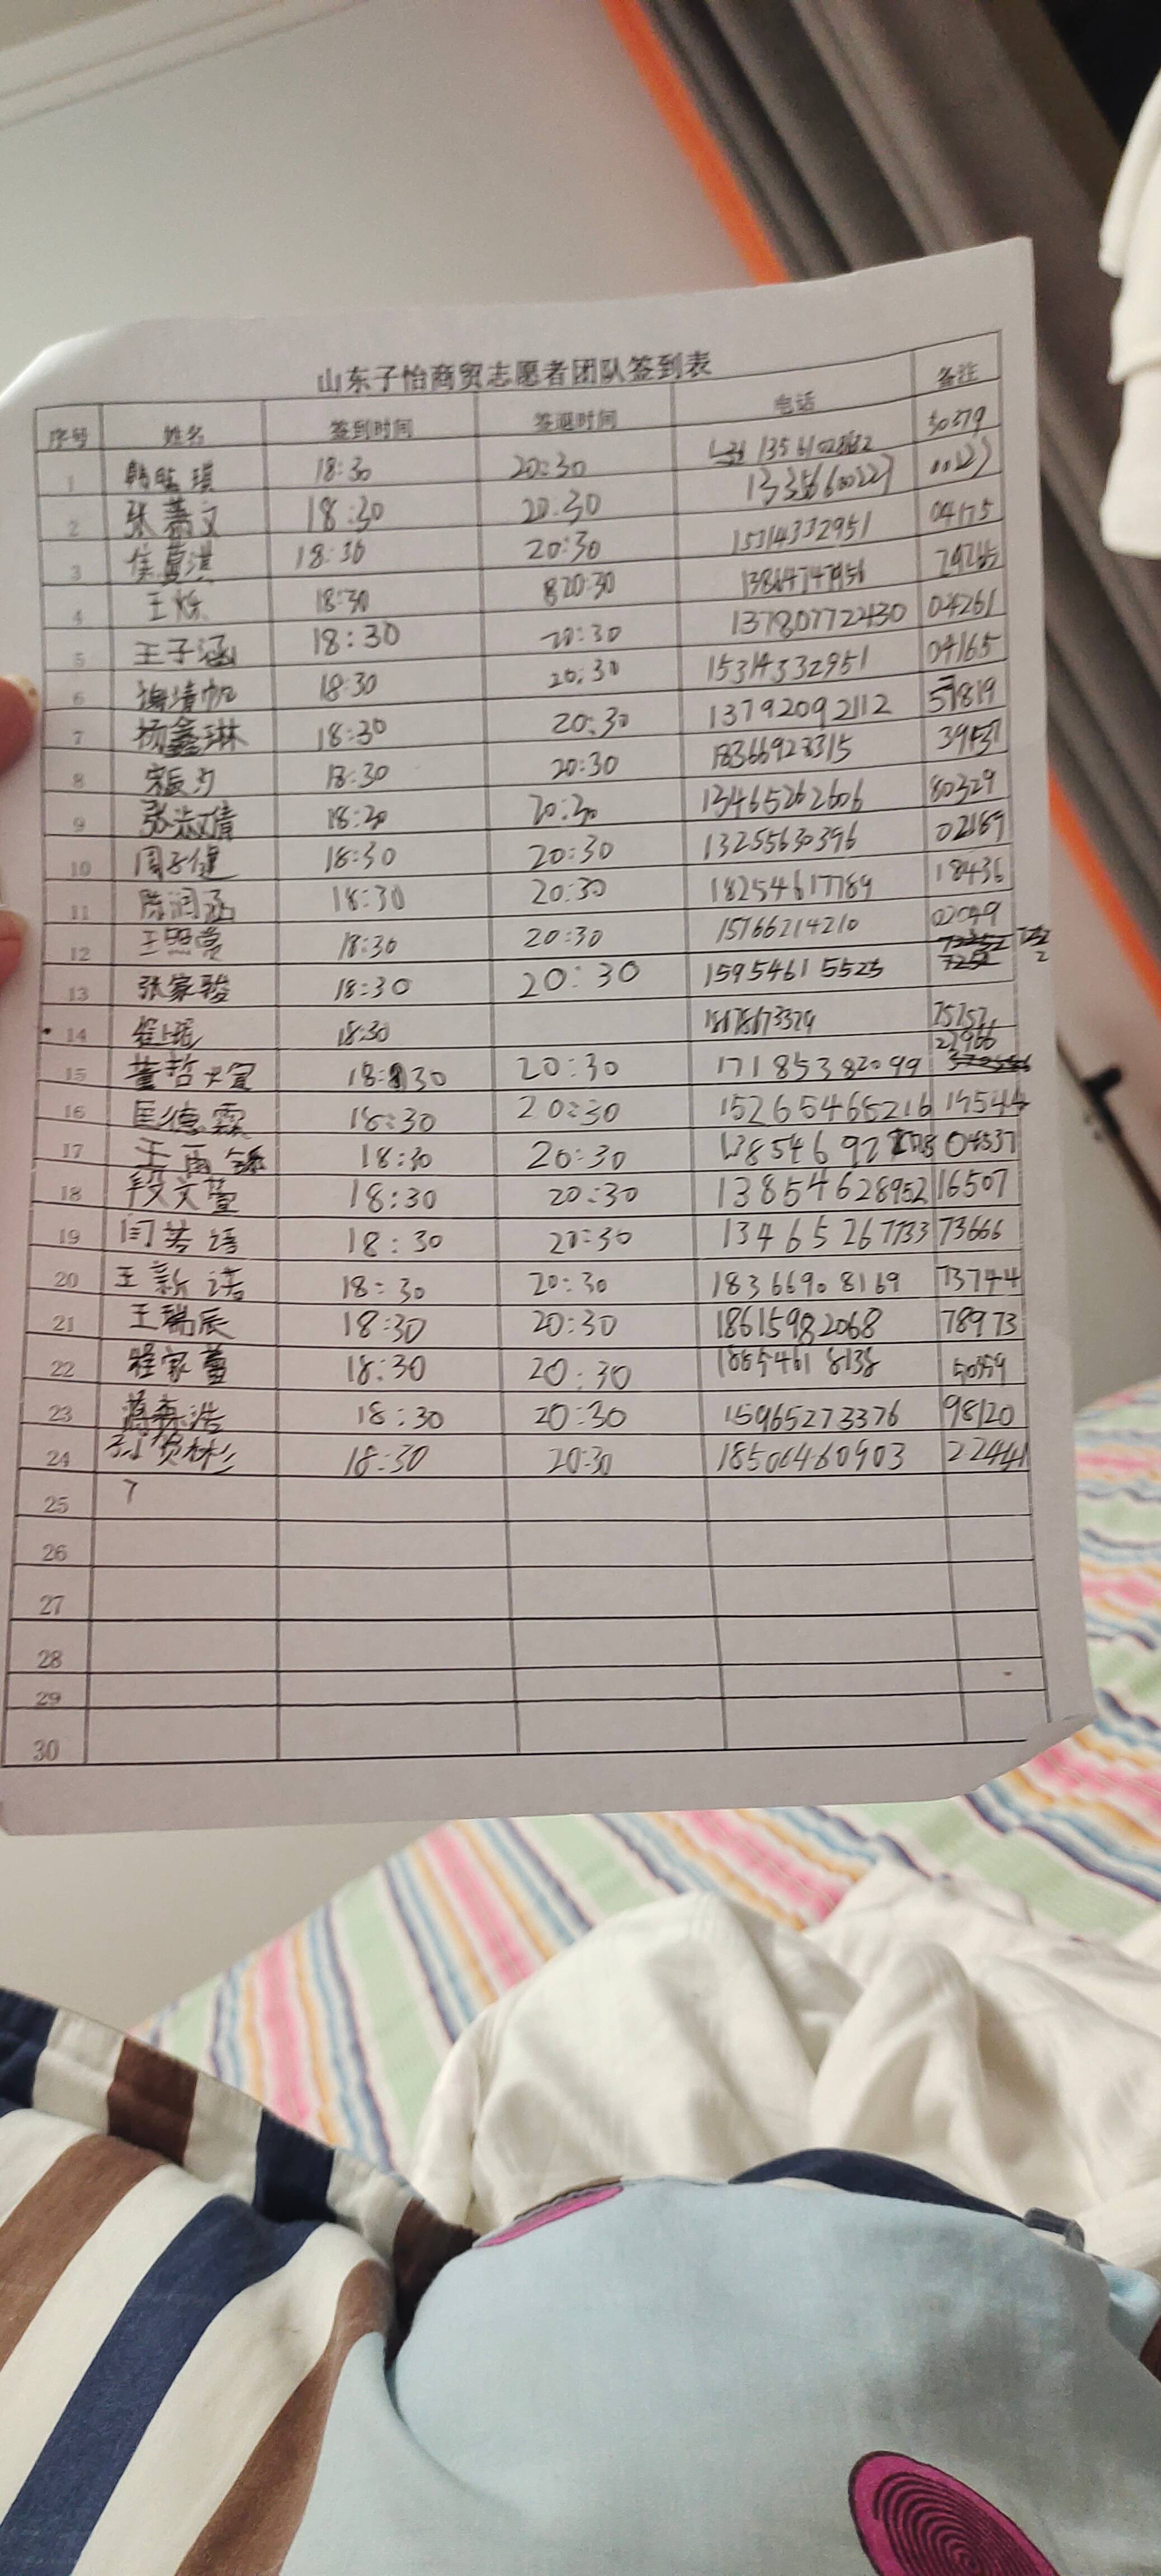 山东子怡商贸志愿者团队签到表
序号 姓名 签到时间 签退时间 电话 备注
1 18:30 20:30 50379
2 张 文 18:30 20:30
3 18:30 20:30 15314332951 04175
4 王烁 18:30 820:30
5 王子涵 18:30 20:30 13780772430 04261
6 18:30 20:30 15314332951 04165
7 杨鑫琳 18:30 20:30 13792092112 51819
8 18:30 20:30 18366928315
9 张淑倩 18:30 20:30 13465262606 80329
10 周子健 18:30 20:30 13255630396 02189
11 陈润涵 18:30 20:30 18254617789 18436
12 18:30 20:30 15766214210 02049
13 张家骏 18:30 20:30 15954615525
14 18:30 75757
15 董哲煊 18:30 20:30 171 85382099 27966
16 匡德霖 18:30 20:30 15265465216 19544
17 王雨 18:30 20:30 04537
18 段文萱 18:30 20:30 13854628952 16507
19 闫芳语 18:30 20:30 13465267733 73666
20 王新诺 18:30 20:30 18366908169 73744
21 王瑞辰 18:30 20:30 18615982068 78973
22 程家萱 18:30 20:30 18654618138 50359
23 森浩 18:30 20:30 15965273376 98120
24 18:30 20:30 18506460903 22441
25
26
27
28
29
30